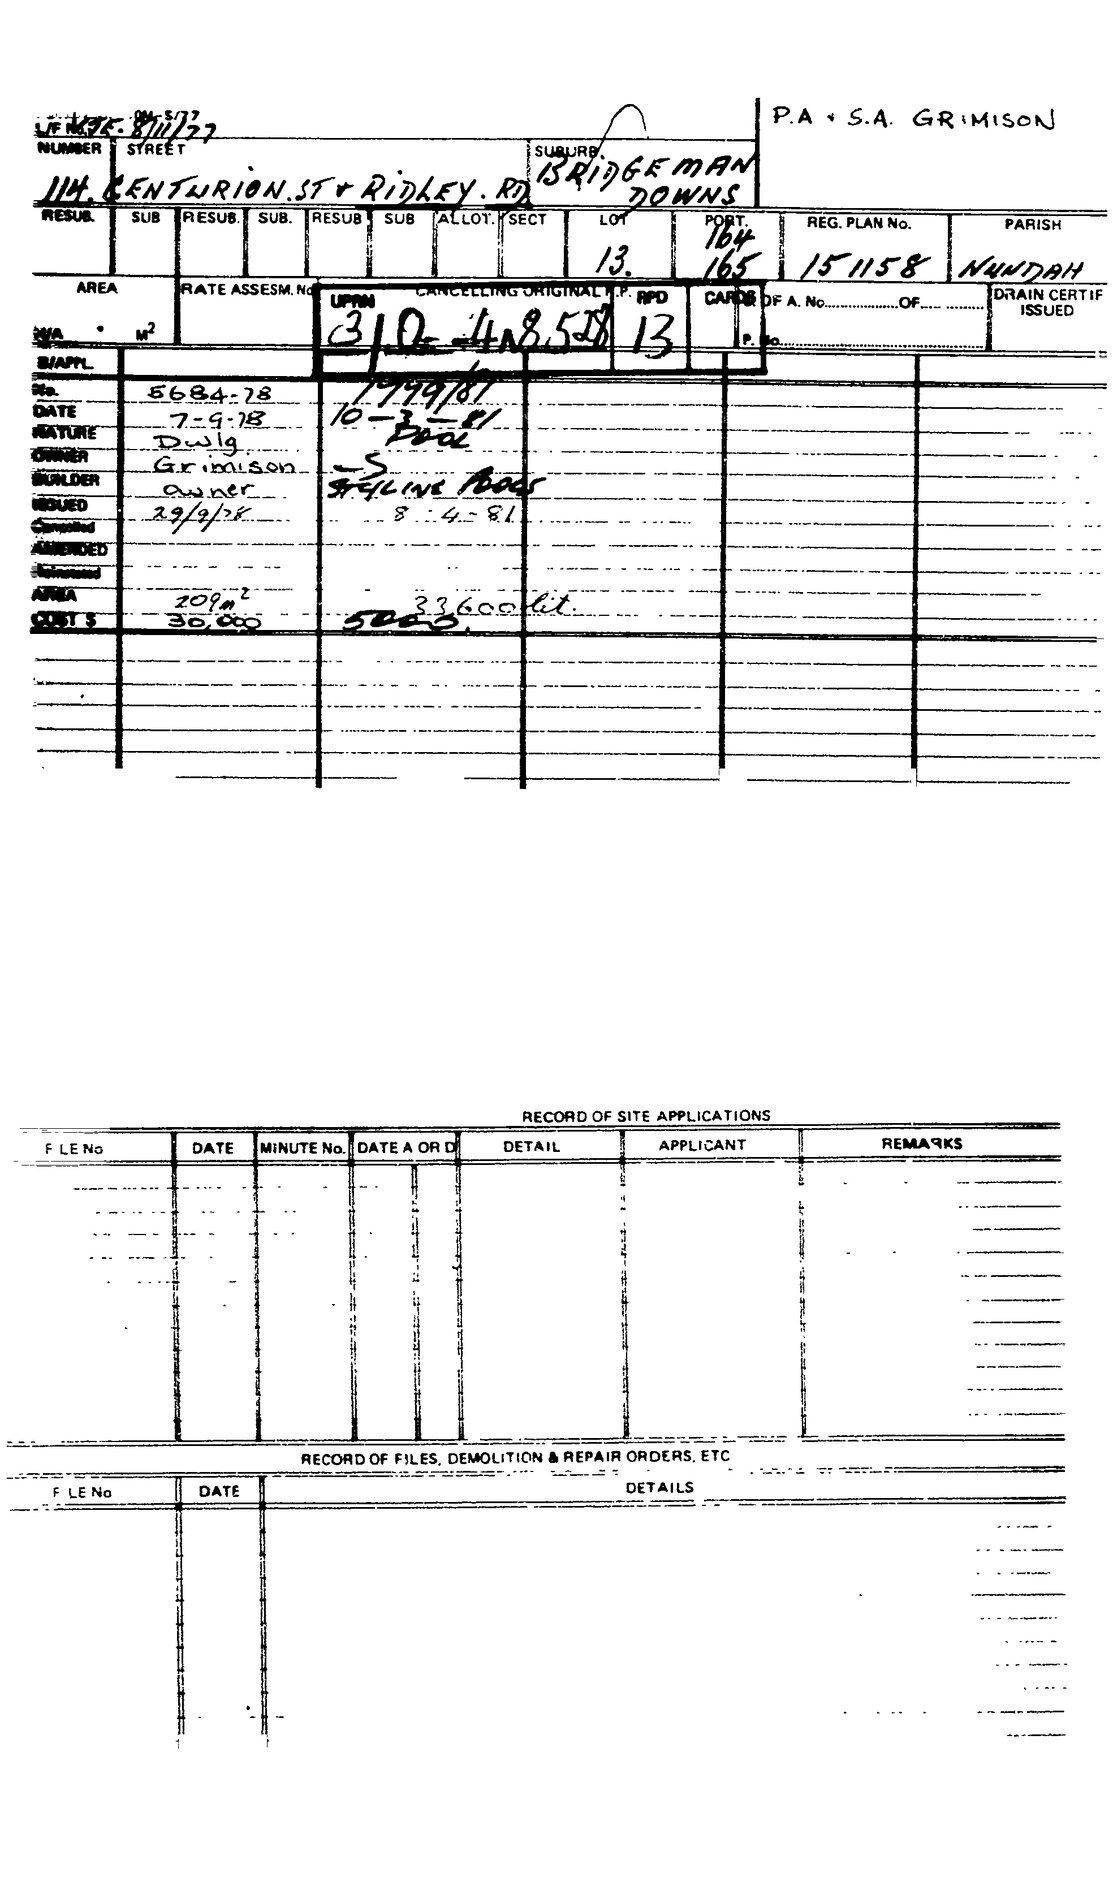 P.A & S.A. GRIMISON
L/F No. 8/11/77
NUMBER STREET SUBURB
114. CENTURION. ST & RIDLEY. RD BRIDGEMAN DOWNS
RESUB. SUB RESUB. SUB. RESUB SUB ALLOT. SECT LOT PORT. REG. PLAN No. PARISH
13. 164 165 151158 NUNDAH
AREA RATE ASSESM. No CANCELLING ORIGINAL UPRN RPD CARDS OF A. No. OF DRAIN CERTIF ISSUED
M² 13 P. No.
B/APPL.
No. 5684-78 1999/81
DATE 7-9-78 10-3-81
NATURE Dwlg POOL
OWNER Grimison -S
BUILDER owner STYLINE POOLS
ISSUED 29/9/78 8-4-81
Cancelled
AMENDED
Reinstated
AREA 209m² 33600 lit.
COST $ 30,000 5000.
RECORD OF SITE APPLICATIONS
F LE No DATE MINUTE No. DATE A OR D DETAIL APPLICANT REMARKS
RECORD OF FILES, DEMOLITION & REPAIR ORDERS, ETC
F LE No DATE DETAILS